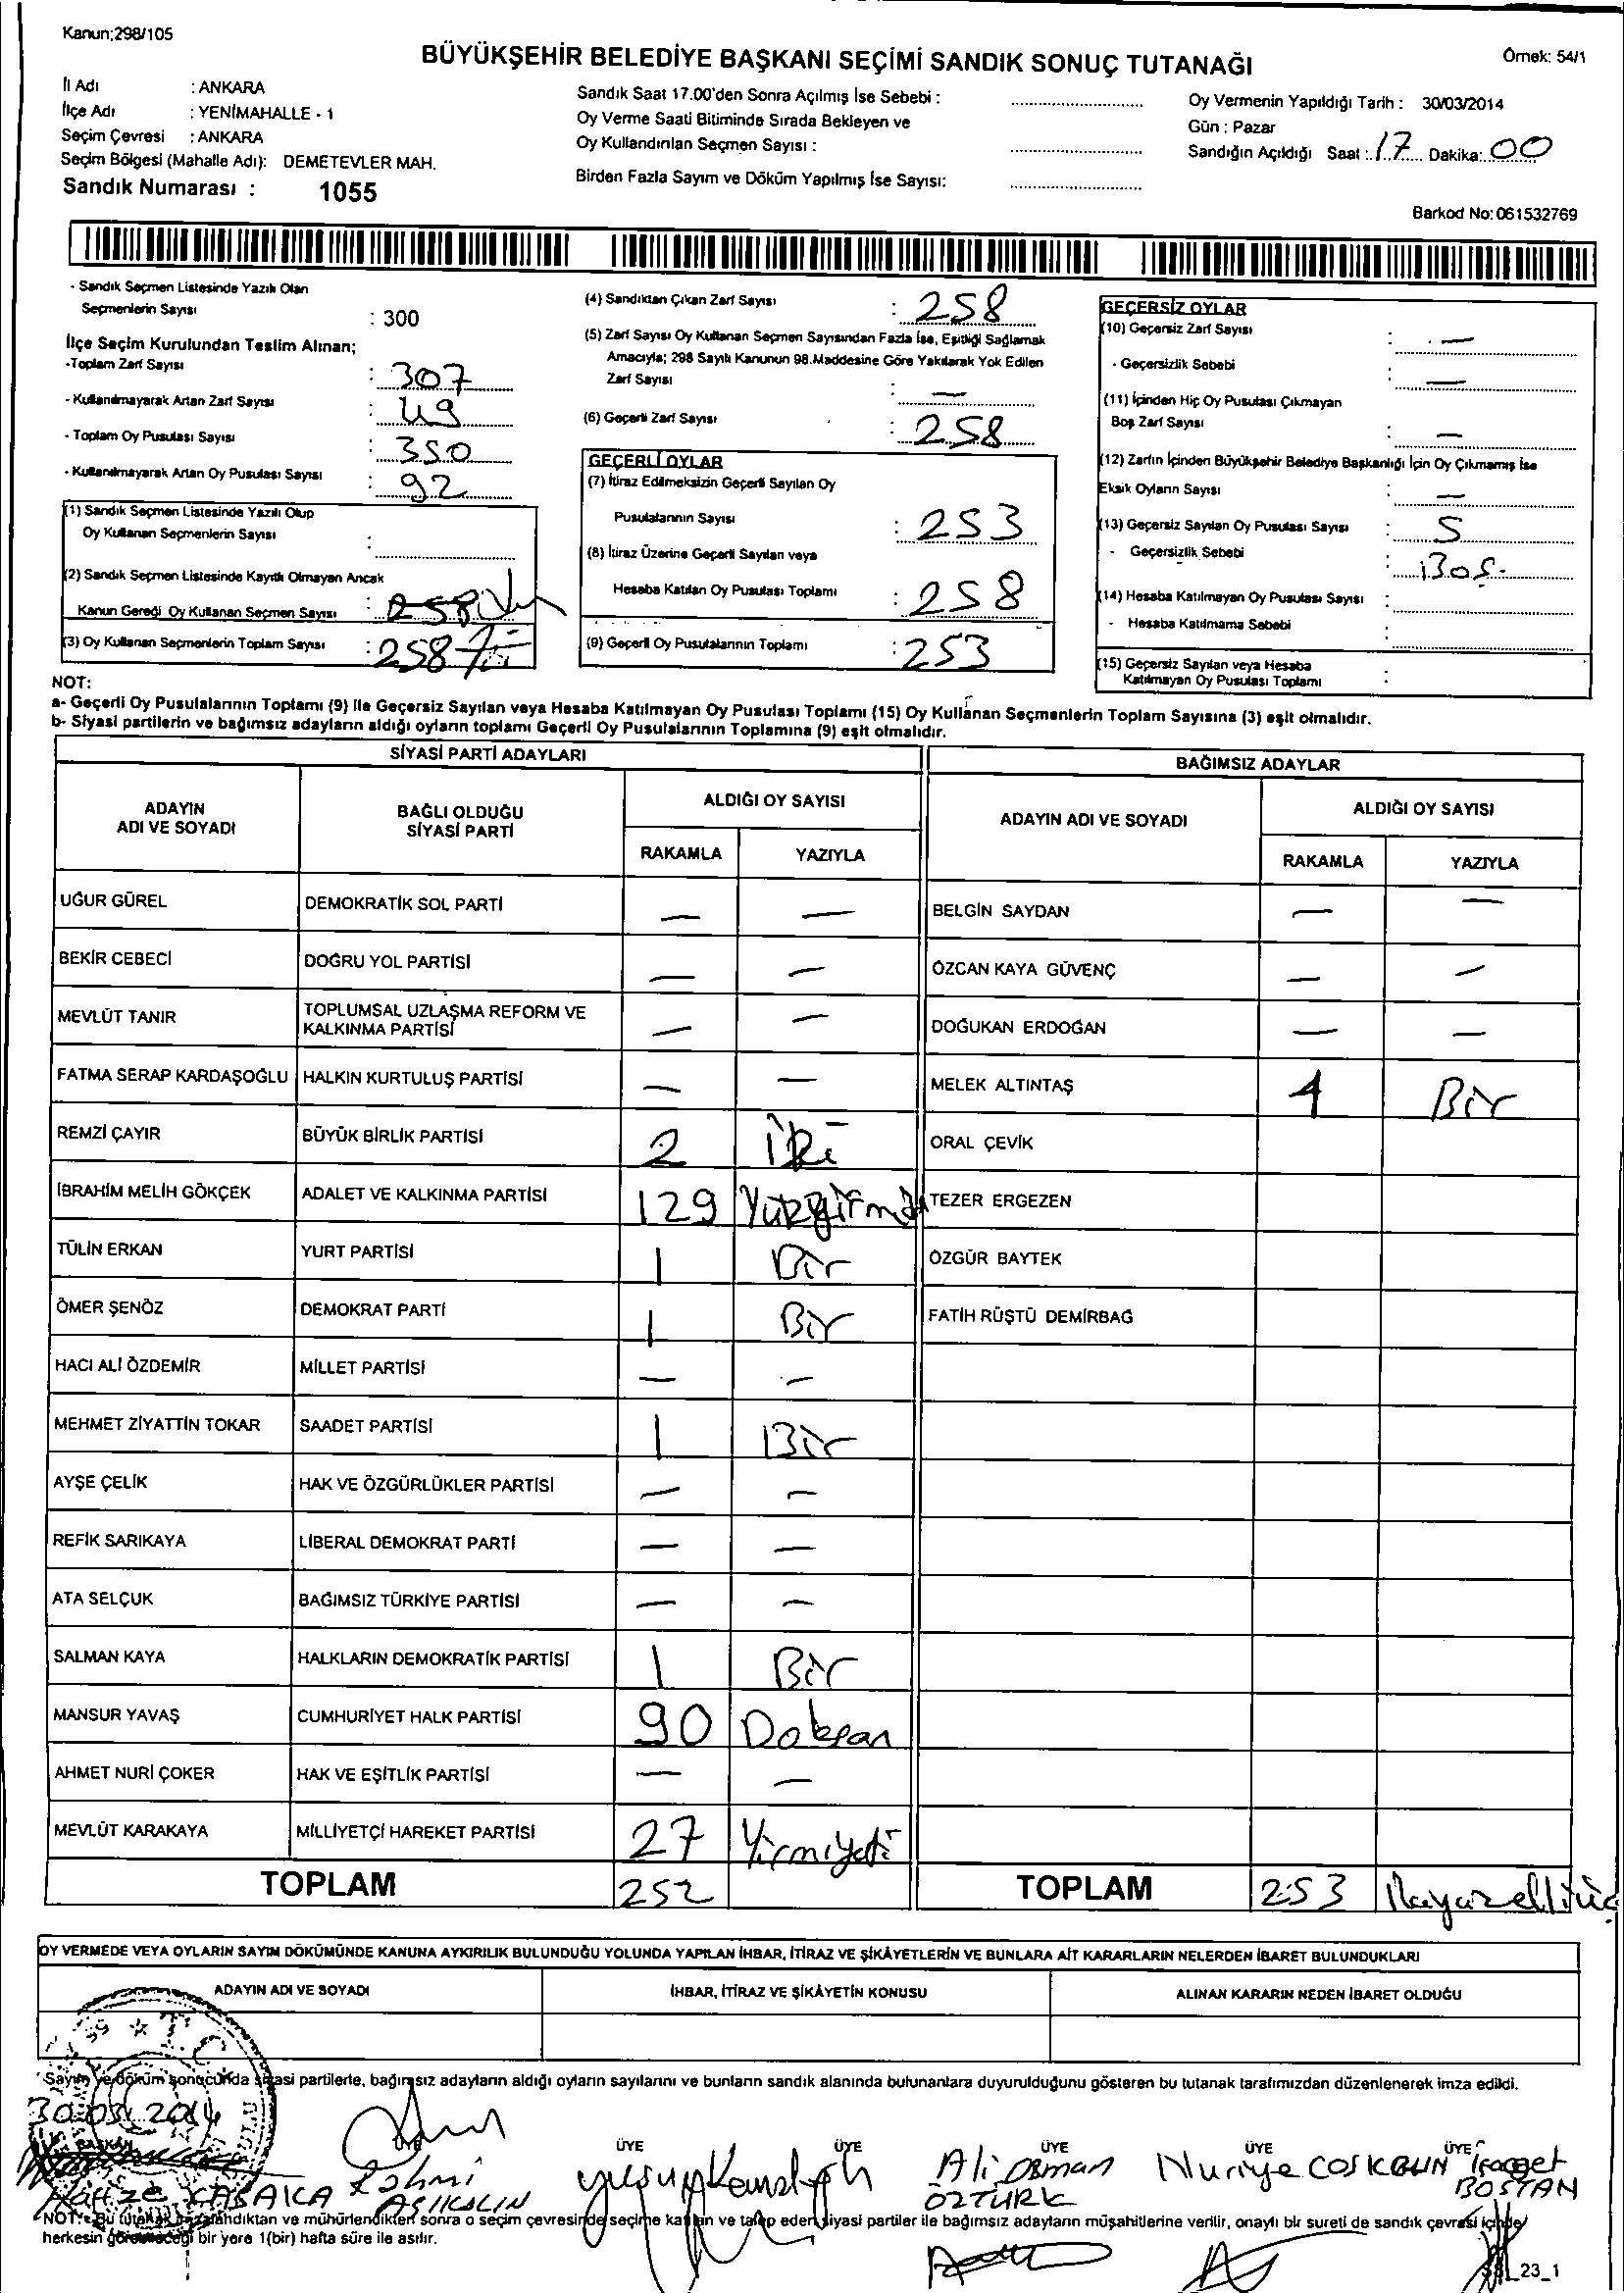 Kanun;298/105
BÜYÜKŞEHİR BELEDİYE BAŞKANI SEÇİMİ SANDIK SONUÇ TUTANAĞI
Örnek: 54/1
İl Adı : ANKARA
İlçe Adı : YENİMAHALLE - 1
Seçim Çevresi : ANKARA
Seçim Bölgesi (Mahalle Adı): DEMETEVLER MAH.
Sandık Numarası : 1055
Sandık Saat 17.00'den Sonra Açılmış İse Sebebi :
Oy Verme Saati Bitiminde Sırada Bekleyen ve
Oy Kullandırılan Seçmen Sayısı :
Birden Fazla Sayım ve Döküm Yapılmış İse Sayısı:
Oy Vermenin Yapıldığı Tarih : 30/03/2014
Gün : Pazar
Sandığın Açıldığı Saat : 17 Dakika: 00
Barkod No: 061532769
- Sandık Seçmen Listesinde Yazılı Olan
Seçmenlerin Sayısı : 300
İlçe Seçim Kurulundan Teslim Alınan;
-Toplam Zarf Sayısı : 307
- Kullanılmayarak Artan Zarf Sayısı : 49
- Toplam Oy Pusulası Sayısı : 350
- Kullanılmayarak Artan Oy Pusulası Sayısı : 92
(1) Sandık Seçmen Listesinde Yazılı Olup
Oy Kullanan Seçmenlerin Sayısı :
(2) Sandık Seçmen Listesinde Kayıtlı Olmayan Ancak
Kanun Gereği Oy Kullanan Seçmen Sayısı : 258
(3) Oy Kullanan Seçmenlerin Toplam Sayısı : 258
(4) Sandıktan Çıkan Zarf Sayısı : 258
(5) Zarf Sayısı Oy Kullanan Seçmen Sayısından Fazla İse, Eşitliği Sağlamak
Amacıyla; 298 Sayılı Kanunun 98.Maddesine Göre Yakılarak Yok Edilen
Zarf Sayısı : —
(6) Geçerli Zarf Sayısı : 258
GEÇERLİ OYLAR
(7) İtiraz Edilmeksizin Geçerli Sayılan Oy
Pusulalarının Sayısı : 253
(8) İtiraz Üzerine Geçerli Sayılan veya
Hesaba Katılan Oy Pusulası Toplamı : 258
(9) Geçerli Oy Pusulalarının Toplamı : 253
GEÇERSİZ OYLAR
(10) Geçersiz Zarf Sayısı : —
- Geçersizlik Sebebi : —
(11) İçinden Hiç Oy Pusulası Çıkmayan
Boş Zarf Sayısı : —
(12) Zarfın İçinden Büyükşehir Belediye Başkanlığı İçin Oy Çıkmamış İse
Eksik Oyların Sayısı : —
(13) Geçersiz Sayılan Oy Pusulası Sayısı : 5
- Geçersizlik Sebebi : Boş.
(14) Hesaba Katılmayan Oy Pusulası Sayısı :
- Hesaba Katılmama Sebebi :
(15) Geçersiz Sayılan veya Hesaba
Katılmayan Oy Pusulası Toplamı :
NOT:
a- Geçerli Oy Pusulalarının Toplamı (9) ile Geçersiz Sayılan veya Hesaba Katılmayan Oy Pusulası Toplamı (15) Oy Kullanan Seçmenlerin Toplam Sayısına (3) eşit olmalıdır.
b- Siyasi partilerin ve bağımsız adayların aldığı oyların toplamı Geçerli Oy Pusulalarının Toplamına (9) eşit olmalıdır.
SİYASİ PARTİ ADAYLARI
ADAYIN ADI VE SOYADI
BAĞLI OLDUĞU SİYASİ PARTİ
ALDIĞI OY SAYISI
RAKAMLA YAZIYLA
UĞUR GÜREL DEMOKRATİK SOL PARTİ — —
BEKİR CEBECİ DOĞRU YOL PARTİSİ — —
MEVLÜT TANIR TOPLUMSAL UZLAŞMA REFORM VE KALKINMA PARTİSİ — —
FATMA SERAP KARDAŞOĞLU HALKIN KURTULUŞ PARTİSİ — —
REMZİ ÇAYIR BÜYÜK BİRLİK PARTİSİ 2 İki
İBRAHİM MELİH GÖKÇEK ADALET VE KALKINMA PARTİSİ 129
TÜLİN ERKAN YURT PARTİSİ 1 Bir
ÖMER ŞENÖZ DEMOKRAT PARTİ 1 Bir
HACI ALİ ÖZDEMİR MİLLET PARTİSİ — —
MEHMET ZİYATTİN TOKAR SAADET PARTİSİ 1 Bir
AYŞE ÇELİK HAK VE ÖZGÜRLÜKLER PARTİSİ — —
REFİK SARIKAYA LİBERAL DEMOKRAT PARTİ — —
ATA SELÇUK BAĞIMSIZ TÜRKİYE PARTİSİ — —
SALMAN KAYA HALKLARIN DEMOKRATİK PARTİSİ 1 Bir
MANSUR YAVAŞ CUMHURİYET HALK PARTİSİ 90 Doksan
AHMET NURİ ÇOKER HAK VE EŞİTLİK PARTİSİ — —
MEVLÜT KARAKAYA MİLLİYETÇİ HAREKET PARTİSİ 27 Yirmiyedi
TOPLAM 252
BAĞIMSIZ ADAYLAR
ADAYIN ADI VE SOYADI
ALDIĞI OY SAYISI
RAKAMLA YAZIYLA
BELGİN SAYDAN — —
ÖZCAN KAYA GÜVENÇ — —
DOĞUKAN ERDOĞAN — —
MELEK ALTINTAŞ 1 Bir
ORAL ÇEVİK
TEZER ERGEZEN
ÖZGÜR BAYTEK
FATİH RÜŞTÜ DEMİRBAĞ
TOPLAM 253 İkiyüzelliüç
OY VERMEDE VEYA OYLARIN SAYIM DÖKÜMÜNDE KANUNA AYKIRILIK BULUNDUĞU YOLUNDA YAPILAN İHBAR, İTİRAZ VE ŞİKÂYETLERİN VE BUNLARA AİT KARARLARIN NELERDEN İBARET BULUNDUKLARI
ADAYIN ADI VE SOYADI
İHBAR, İTİRAZ VE ŞİKÂYETİN KONUSU
ALINAN KARARIN NEDEN İBARET OLDUĞU
Sayım ve döküm sonucunda siyasi partilerle, bağımsız adayların aldığı oyların sayılarını ve bunların sandık alanında bulunanlara duyurulduğunu gösteren bu tutanak tarafımızdan düzenlenerek imza edildi.
30.03.2014
BAŞKAN ÜYE ÜYE ÜYE ÜYE ÜYE ÜYE
Ali Osman ÖZTÜRK
Nuriye COSKGUN
BOSTAN
NOT: Bu tutanak imzalandıktan ve mühürlendikten sonra o seçim çevresinde seçime katılan ve talep eden siyasi partiler ile bağımsız adayların müşahitlerine verilir, onaylı bir sureti de sandık çevresi içinde
herkesin görebileceği bir yere 1(bir) hafta süre ile asılır.
23_1